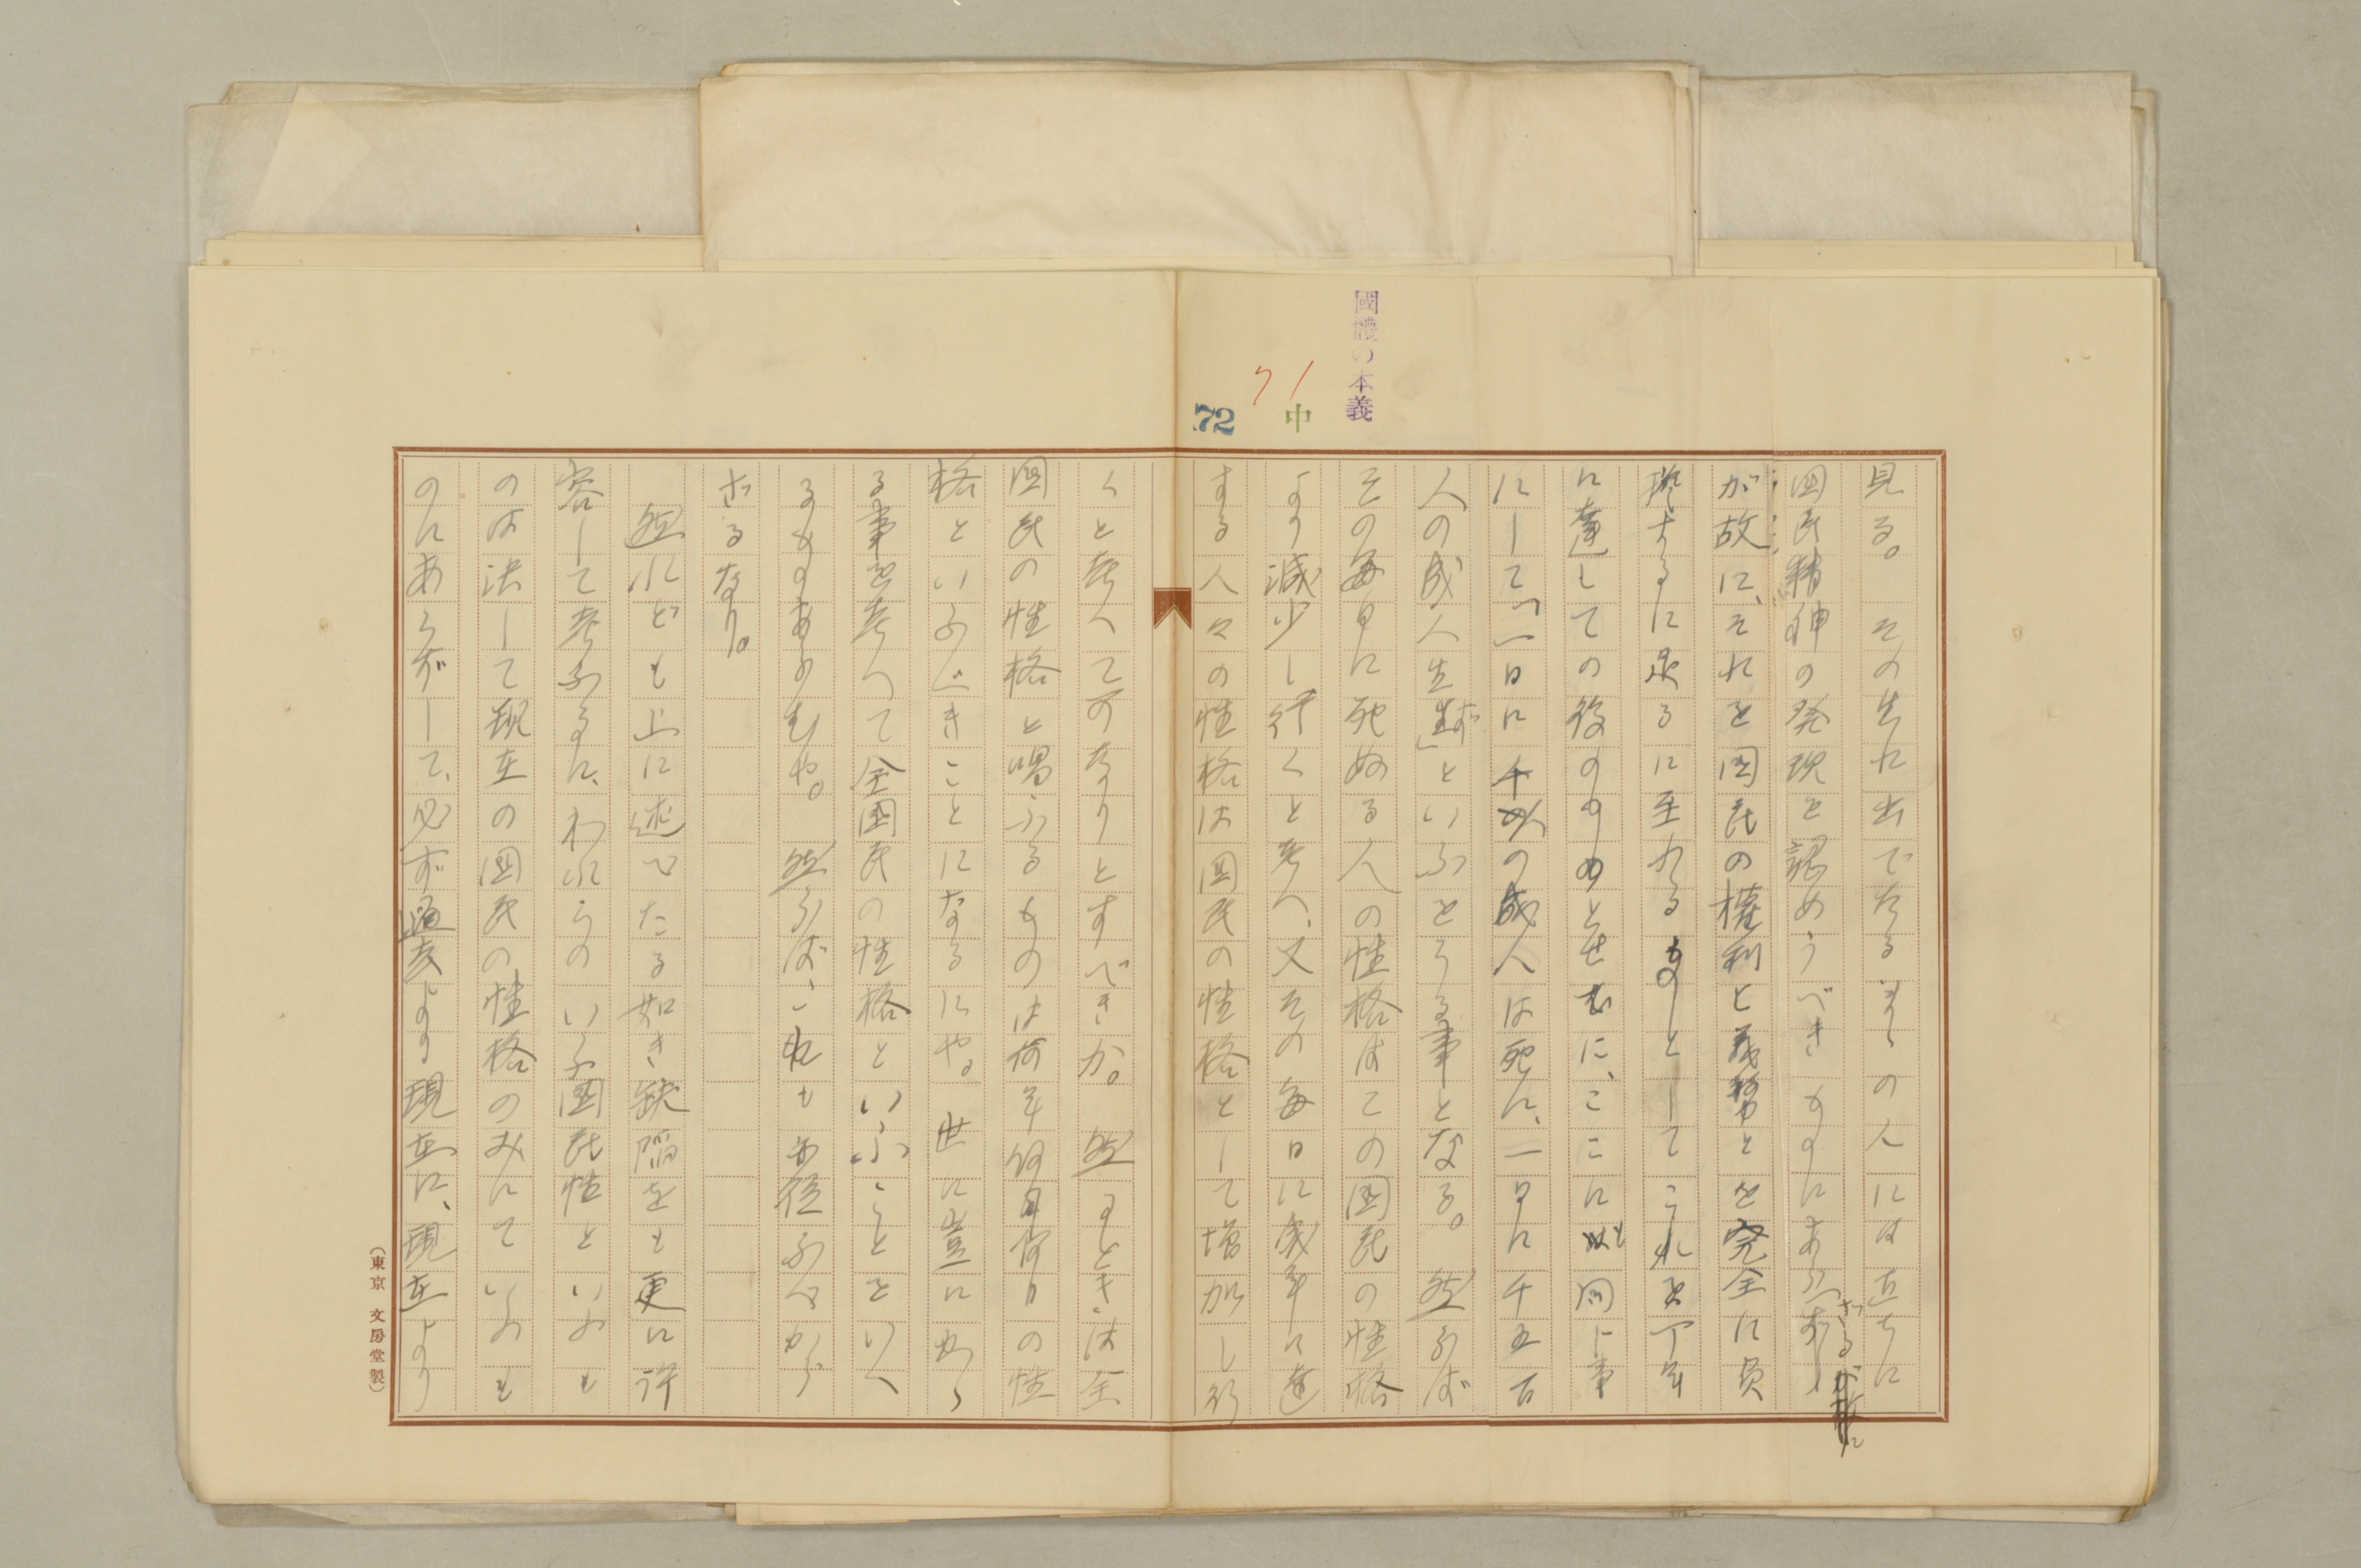 國體の本義
中
71
72
見る。その生れ出でたる の人には直ちに
国民精神の発現を認めうべきものにあらざる
が故に、それを国民の権利と義務とを完全に負
擔するに足るに至れるものとしてこれを丁年
に達しての後のものとせむに、ここに 同じ事
にして「一日に千 の成人は死に、一日に千五百
人の成人生 」といふをうる事となる。然らば
その毎日に死ぬる人の性格はこの国民の性格
より減少し行くと考へ、又その毎日に成年に達
する人々の性格は国民の性格として増加し行
くと考へて可なりとすべきか。然るときは全
国民の性格と唱ふるものは何年何月何日の性
格といふべきことになるにや。世に豈に かゝ
る事を考へて全国民の性格といふことをいへ
るものあらむや。然らばこれも亦従ふべから
ざるなり。
然れども上に述べたる如き缺陥をも更に許
容して考ふるに、われらのいふ国民性といふも
のは決して現在の国民の性格のみにていふも
のにあらずして、必ず過去より現在に、現在より
（東京 文房堂製）